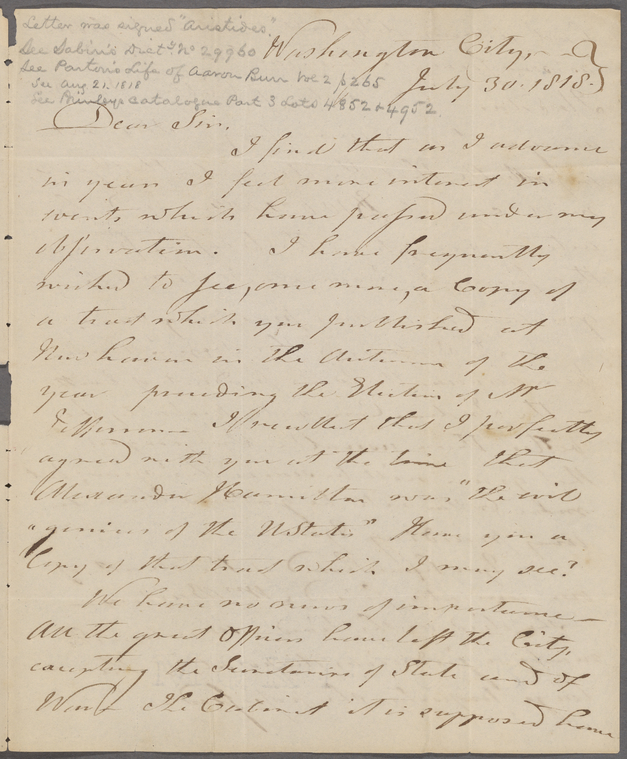 Letter was signed "Aristides"
See Sabin's Dict'y No 29960
See Parton's Life of Aaron Burr Vol 2 p265
See Aug 21. 1818
See Brinley catalogue Part 3 Lots 4852 & 4952.
Washington City,
July 30. 1818.
Dear Sir,
I find that as I advance
in years I feel more interest in
events which have passed under my
observation. I have frequently
wished to see, once more, a Copy of
a tract which you published at
New haven in the Autumn of the
year preceding the Election of Mr
Jefferson. I recollect that I perfectly
agreed with you at the time that
Alexander Hamilton was "the evil
"genius of the UStates" Have you a
Copy of that tract which I may see?
We have no news of importance —
All the great Officers have left the City,
excepting the Secretaries of State and of
War. The Cabinet it is supposed have